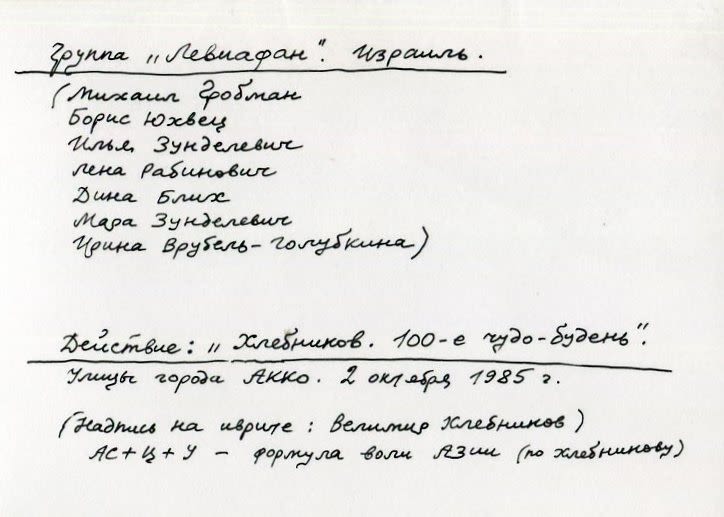 Группа „Левиафан". Израиль.
(Михаил Гробман
Борис Юхвец
Илья Зунделевич
Лена Рабинович
Дина Блих
Мара Зунделевич
Ирина Врубель-Голубкина)
Действие: „Хлебников. 100-е чудо-будень".
Улицы города Акко. 2 октября 1985 г.
(Надпись на иврите: Велимир Хлебников)
АС+Ц+У – формула воли Азии (по Хлебникову)